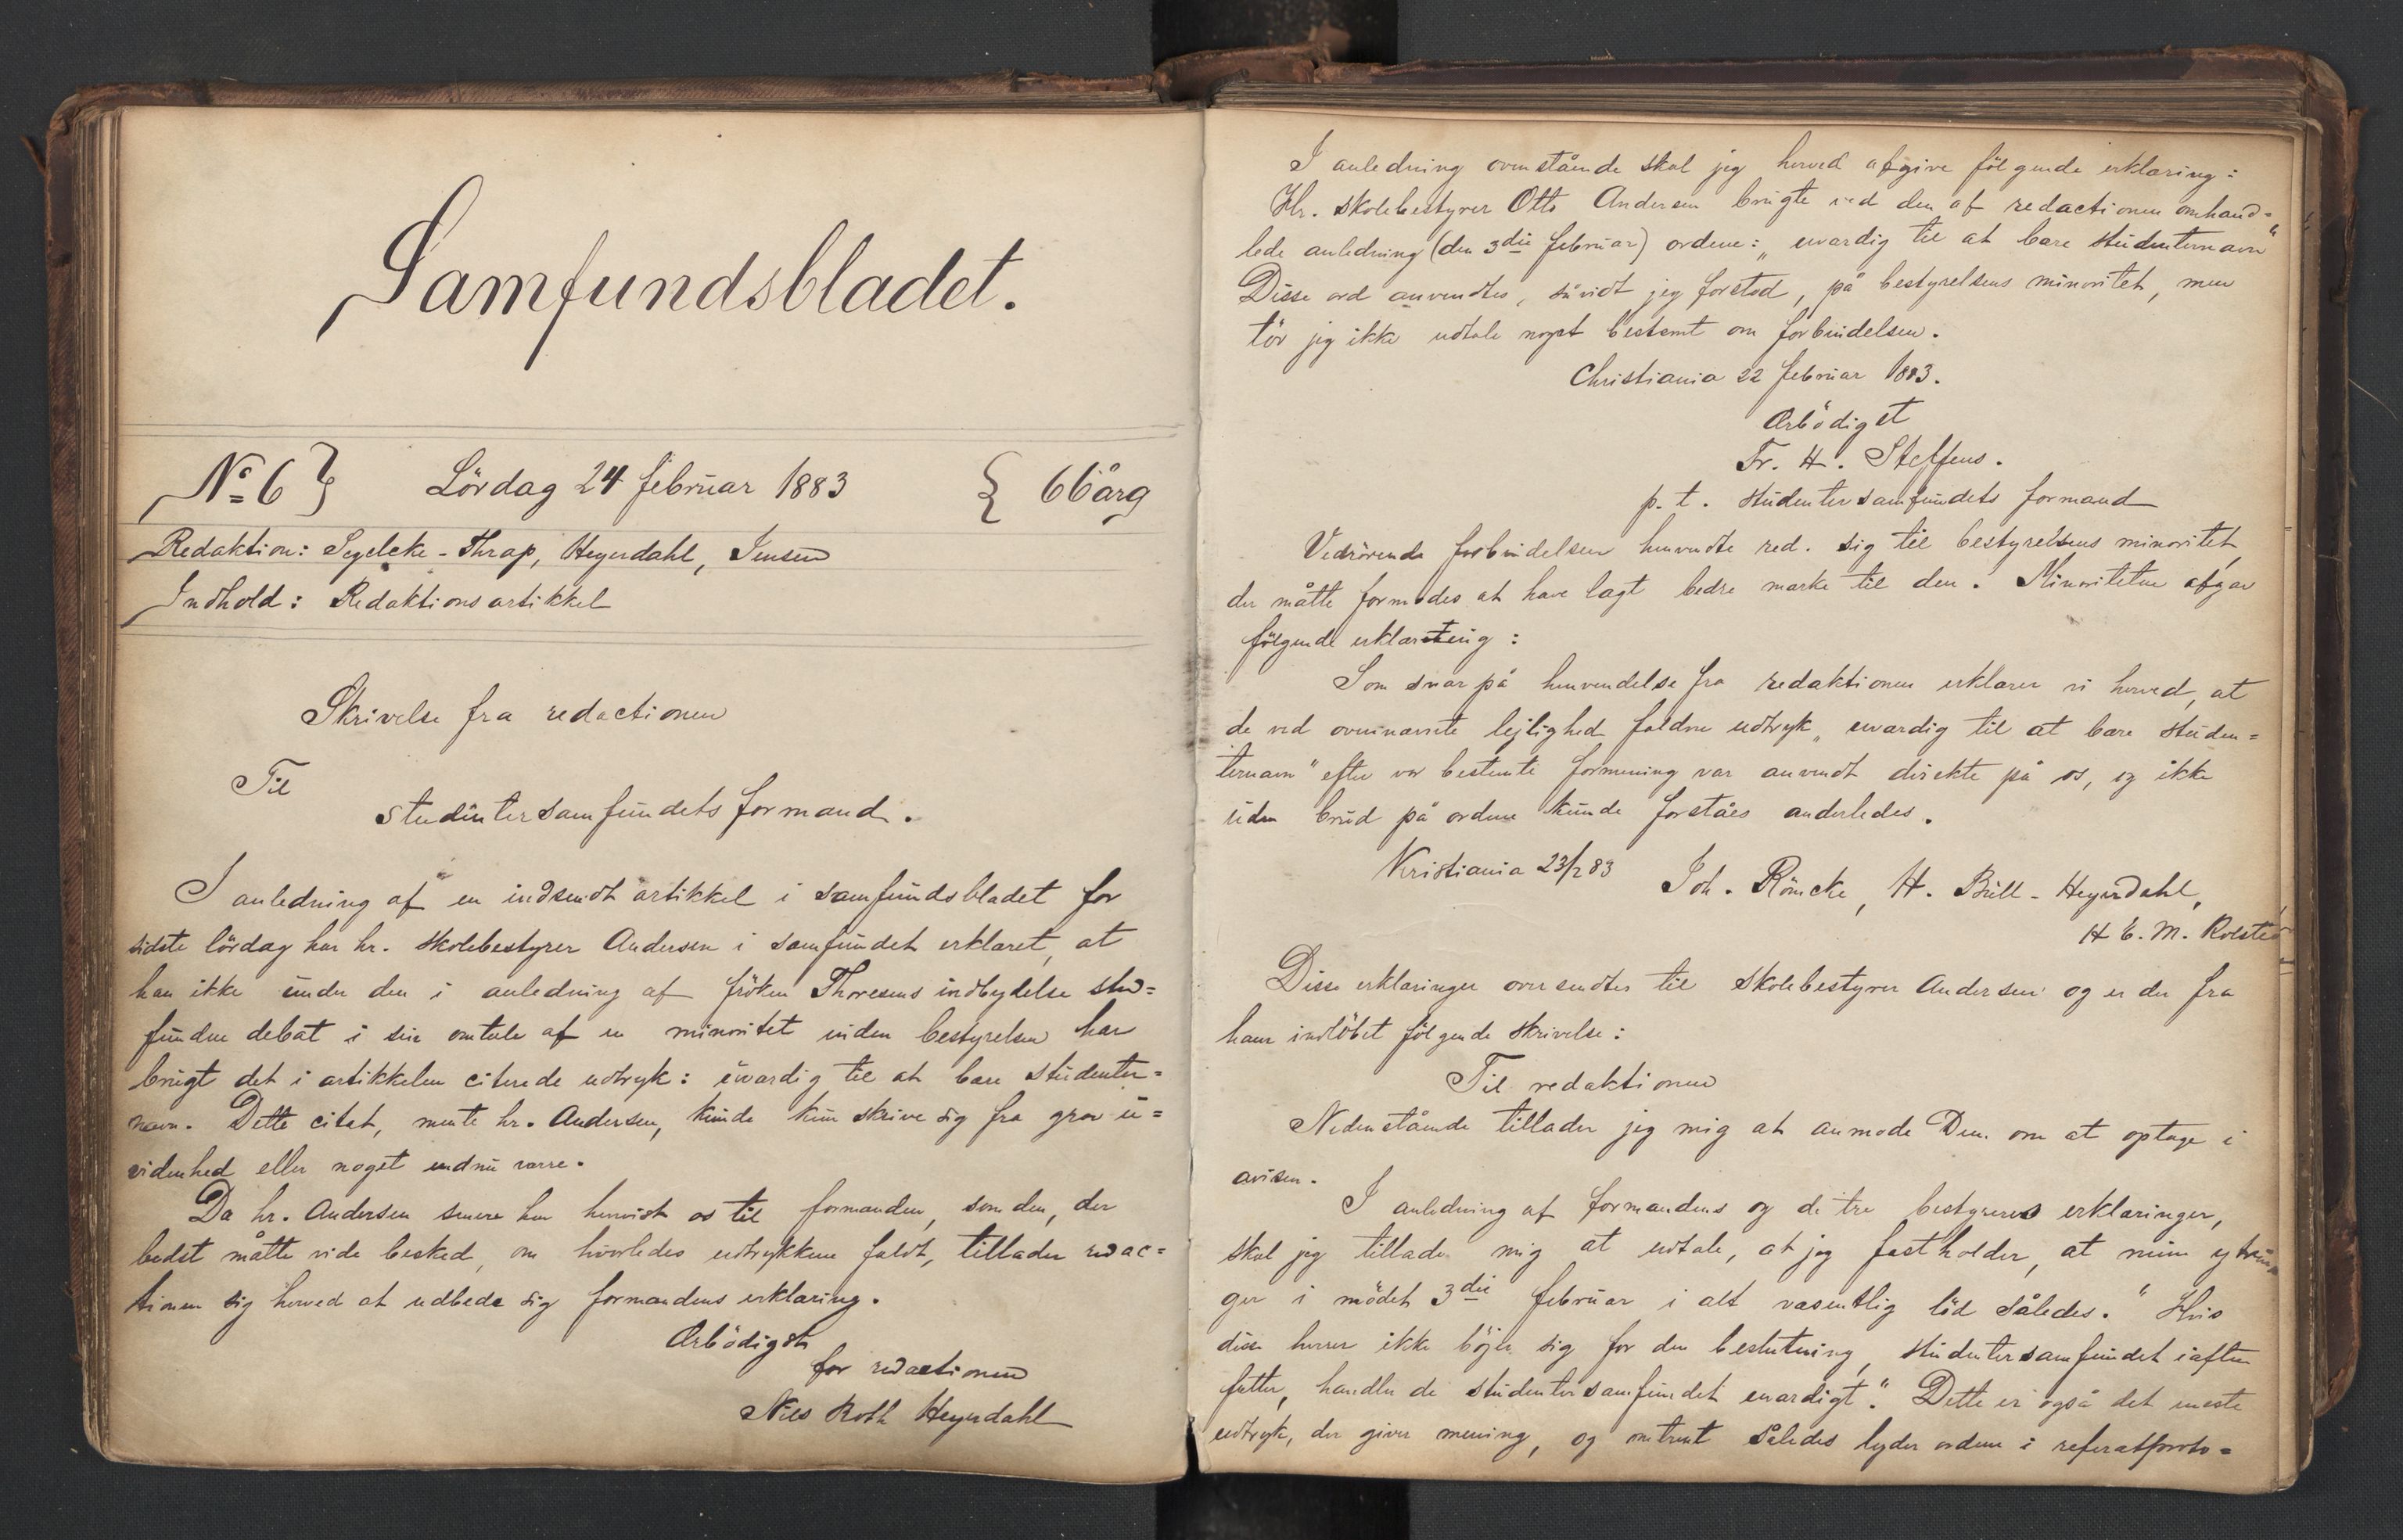 Samfundsbladet.
No 6 } Lördag 24 februar 1883 { 66 årg
Redaktion: Segelcke-Thrap, Heyerdahl, Jensen
Indhold: Redaktionsartikkel
Skrivelse fra redactionen
Til
studentersamfundets formand.
I anledning af en indsendt artikkel i samfundsbladet for
sidste lördag har hr. skolebestyrer Andersen i samfundet erklæret, at
han ikke under den i anledning af fröken Thoresens indbydelse sted=
fundne debat i sin omtale af en minoritet inden bestyrelsen har
brugt det i artikkelen citerede udtryk: uværdig til at bære studenter=
navn. Dette citat, mente hr. Andersen, kunde kun skrive sig fra grov u=
videnhed eller noget endnu værre.
Da hr. Andersen senere har henvist os til formanden, som den, der
bedst måtte vide besked, om hvorledes udtrykkene faldt, tillader redac=
tionen sig herved at udbede sig formandens erklæring.
Ærbödigst
for redactionen
Nils Roth Heyerdahl
I anledning ovenstående skal jeg herved afgive fölgende erklæring:
Hr. skolebestyrer Otto Andersen brugte ved den af redactionen omhand=
lede anledning (den 3die februar) ordene: „uværdig til at bære studenternavn“
Disse ord anvendtes, såvidt jeg forstod, på bestyrelsens minoritet, men
tör jeg ikke udtale noget bestemt om forbindelsen.
Christiania 22 februar 1883.
Ærbödigst
Fr. H. Steffens.
p. t. studentersamfundets formand
Vedrörende forbindelsen henvendte red. sig til bestyrelsens minoritet,
der måtte formodes at have lagt bedre mærke til den. Minoriteten afgav
fölgende erklæring:
Som svar på henvendelse fra redaktionen erklærer vi herved, at
de ved ovennævnte lejlighed faldne udtryk „uværdig til at bære studen=
ternavn“ efter vor bestemte formening var anvendt direkte på os, og ikke
uden brud på ordene kunde forståes anderledes.
Kristiania 23/2 83 Joh. Römcke, H. Bull-Heyerdahl,
H E. M. Rolsted
Disse erklæringer oversendtes til skolebestyrer Andersen og er der fra
ham indlöbet fölgende skrivelse:
Til redaktionen
Nedenstående tillader jeg mig at anmode Dem om at optage i
avisen.
I anledning af formandens og de tre bestyreres erklæringer,
skal jeg tillade mig at udtale, at jeg fastholder, at mine ytrin
ger i mödet 3die februar i alt væsentlig löd således. “Hvis
disse herrer ikke böjer sig for den beslutning, studentersamfundet iaften
fatter, handler de studentersamfundet uværdigt.“ Dette er også det eneste
udtryk, der giver mening, og omtrent således lyder ordene i referatproto=